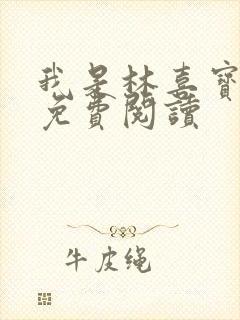 我是林喜寶
免費閱讀
牛皮绳